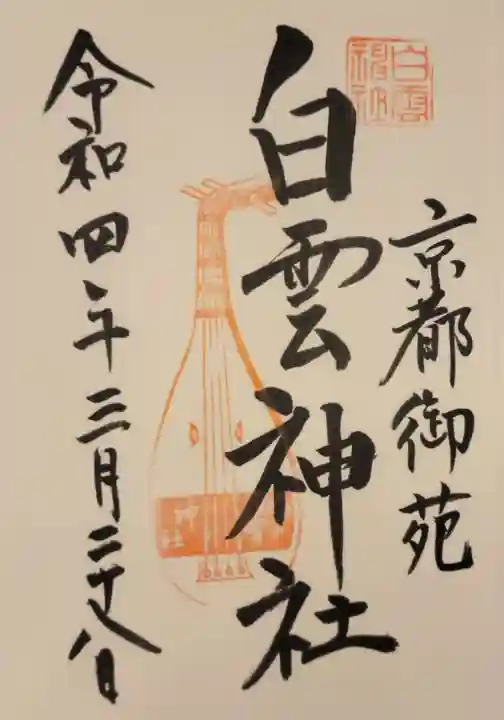 京都御苑
白雲
神社
白雲神社
令和四年三月二十八日